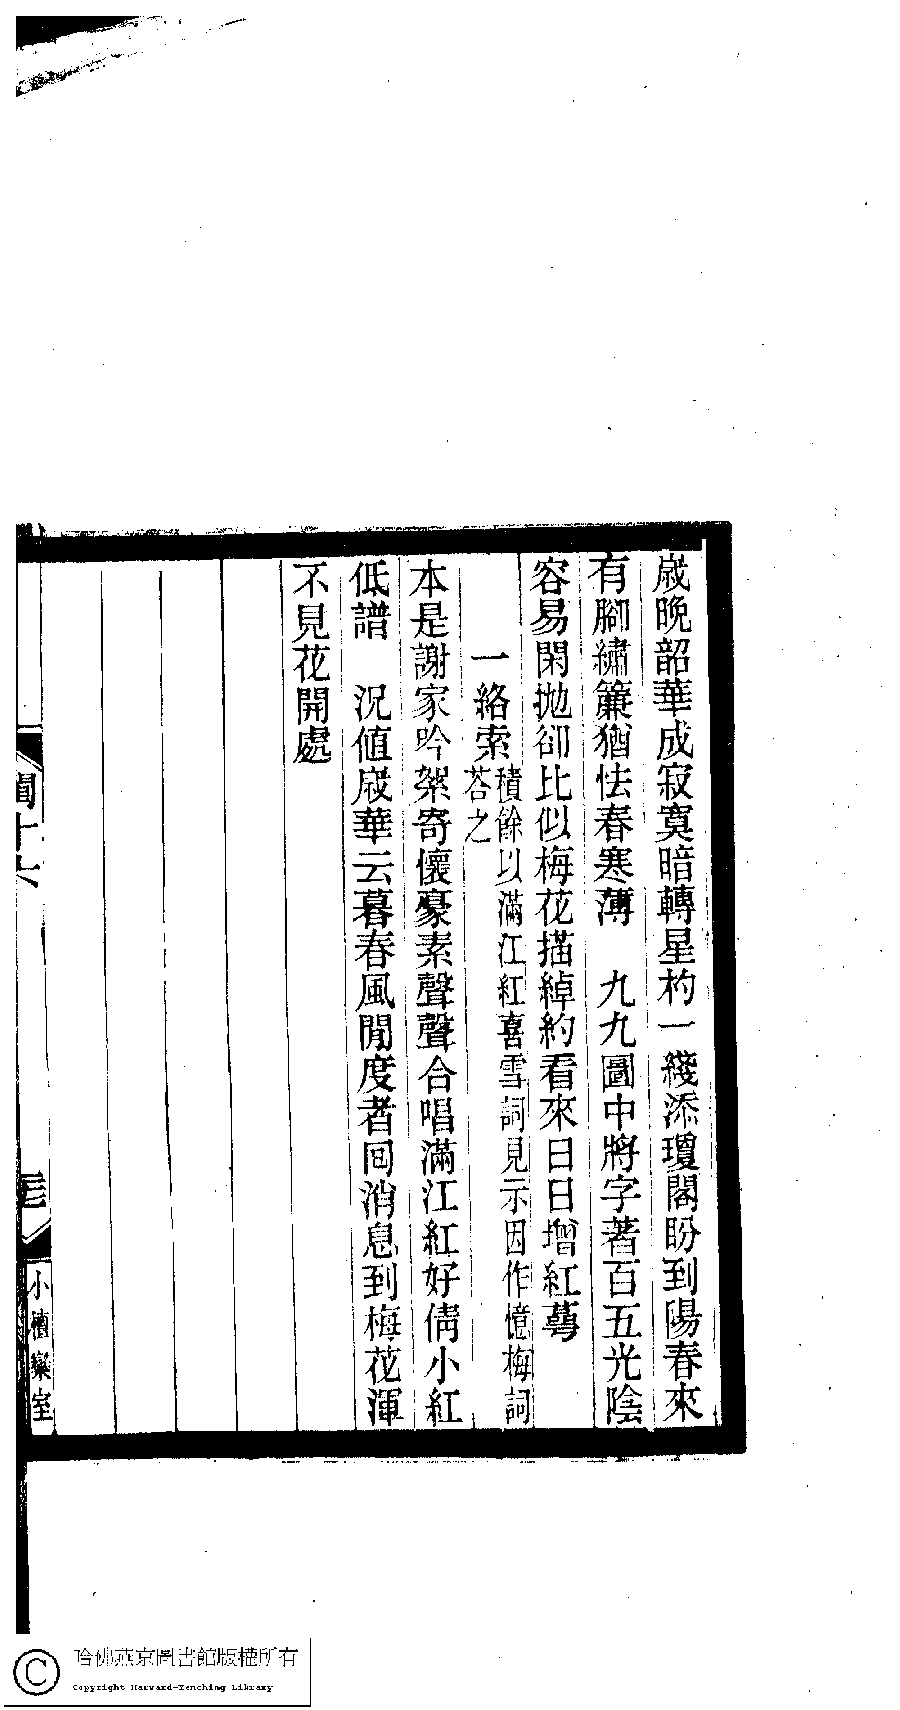 歲晚韶華成寂寞暗轉星杓一綫添瓊閣盼到陽春來
有腳繡簾猶怯春寒薄　九九圖中將字著百五光陰
容易閑拋卻比似梅花描綽約看來日日增紅萼
一絡索積餘以滿江紅喜雪詞見示因作憶梅詞
荅之
本是謝家吟絮寄懷豪素聲聲合唱滿江紅好倩小紅
低譜　況値歲華云暮春風閒度者回消息到梅花渾
不見花開處
閨十六
小檀欒室
哈佛燕京圖書館版權所有
Copyright Harvard-Yenching Library